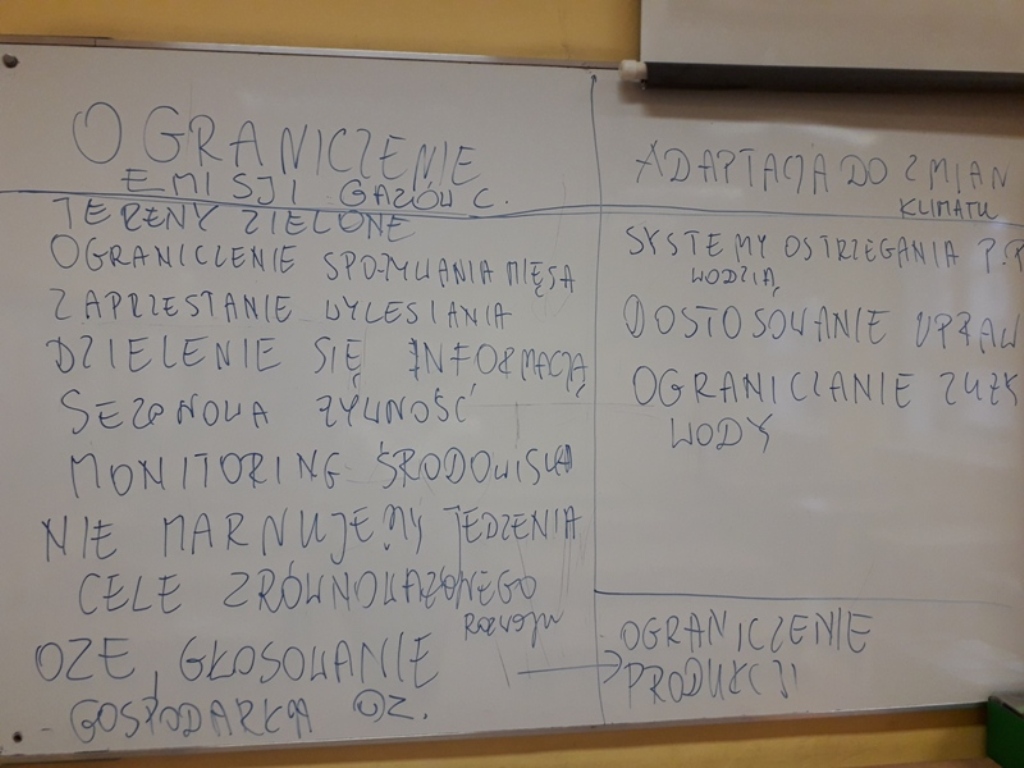 OGRANICZENIE
EMISJI GAZÓW C.
TERENY ZIELONE
OGRANICZENIE SPOŻYWANIA MIĘSA
ZAPRZESTANIE WYLESIANIA
DZIELENIE SIĘ INFORMACJĄ
SEZONOWA ŻYWNOŚĆ
MONITORING ŚRODOWISKA
NIE MARNUJEMY JEDZENIA
CELE ZRÓWNOWAŻONEGO
ROZWOJU
OZE, GŁOSOWANIE
GOSPODARKA OZ.
ADAPTACJA DO ZMIAN
KLIMATU
SYSTEMY OSTRZEGANIA P.P
WODZIĄ
DOSTOSOWANIE UPRAW
OGRANICZANIE ZUŻ
WODY
OGRANICZENIE
PRODUKCJI